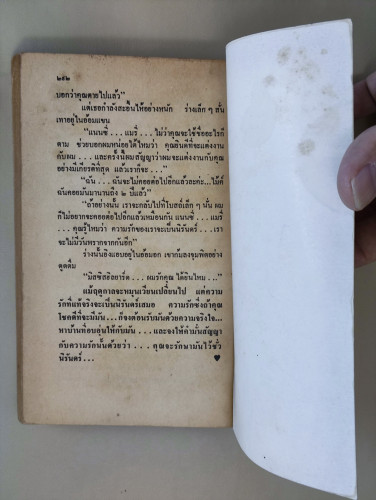 ๒๙๒
บอกว่าคุณตายไปแล้ว"
แต่เธอกำลังสะอื้นไห้อย่างหนัก ร่างเล็ก ๆ สั่น
เทาอยู่ในอ้อมแขน
"แนนซี่ . . . แมรี่ . . . ไม่ว่าคุณจะใช้ชื่ออะไรก็
ตาม ช่วยบอกผมหน่อยได้ไหมว่า คุณยินดีที่จะแต่งงาน
กับผม . . . และครั้งนี้ผมสัญญาว่าผมจะแต่งงานกับคุณ
อย่างมีเกียรติที่สุด แล้วเราก็จะ . . ."
"ฉัน . . . ฉันจะไม่คอยต่อไปอีกแล้วละค่ะ...ไมค์
ฉันคอยมันมานานถึง ๒ ปีแล้ว"
"ถ้าอย่างนั้น เราจะกลับไปที่โบสถ์เล็ก ๆ นั่น ผม
ก็ไม่อยากจะคอยต่อไปอีกแล้วเหมือนกัน แนนซี่ . . . แมรี่
. . . คุณรู้ไหมว่า ความรักของเราจะเป็นนิรันดร์ . . . เรา
จะไม่มีวันพรากจากกันอีก"
ร่างนั้นอิงแอบอยู่ในอ้อมอก เขาก้มลงจุมพิตอย่าง
ดูดดื่ม
"มิสซิสฮิลยาร์ด . . . ผมรักคุณ ได้ยินไหม . . ."
แม้ฤดูกาลจะหมุนเวียนเปลี่ยนไป แต่ความ
รักที่แท้จริงจะเป็นนิรันดร์เสมอ ความรักซึ่งถ้าคุณ
โชคดีที่จะมีมัน . . . ก็จงต้อนรับมันด้วยความจริงใจ...
หาบ้านที่อบอุ่นให้กับมัน . . . และจงให้คำมั่นสัญญา
กับความรักนั้นด้วยว่า . . . คุณจะรักษามันไว้ชั่ว
นิรันดร์ . . . ♥